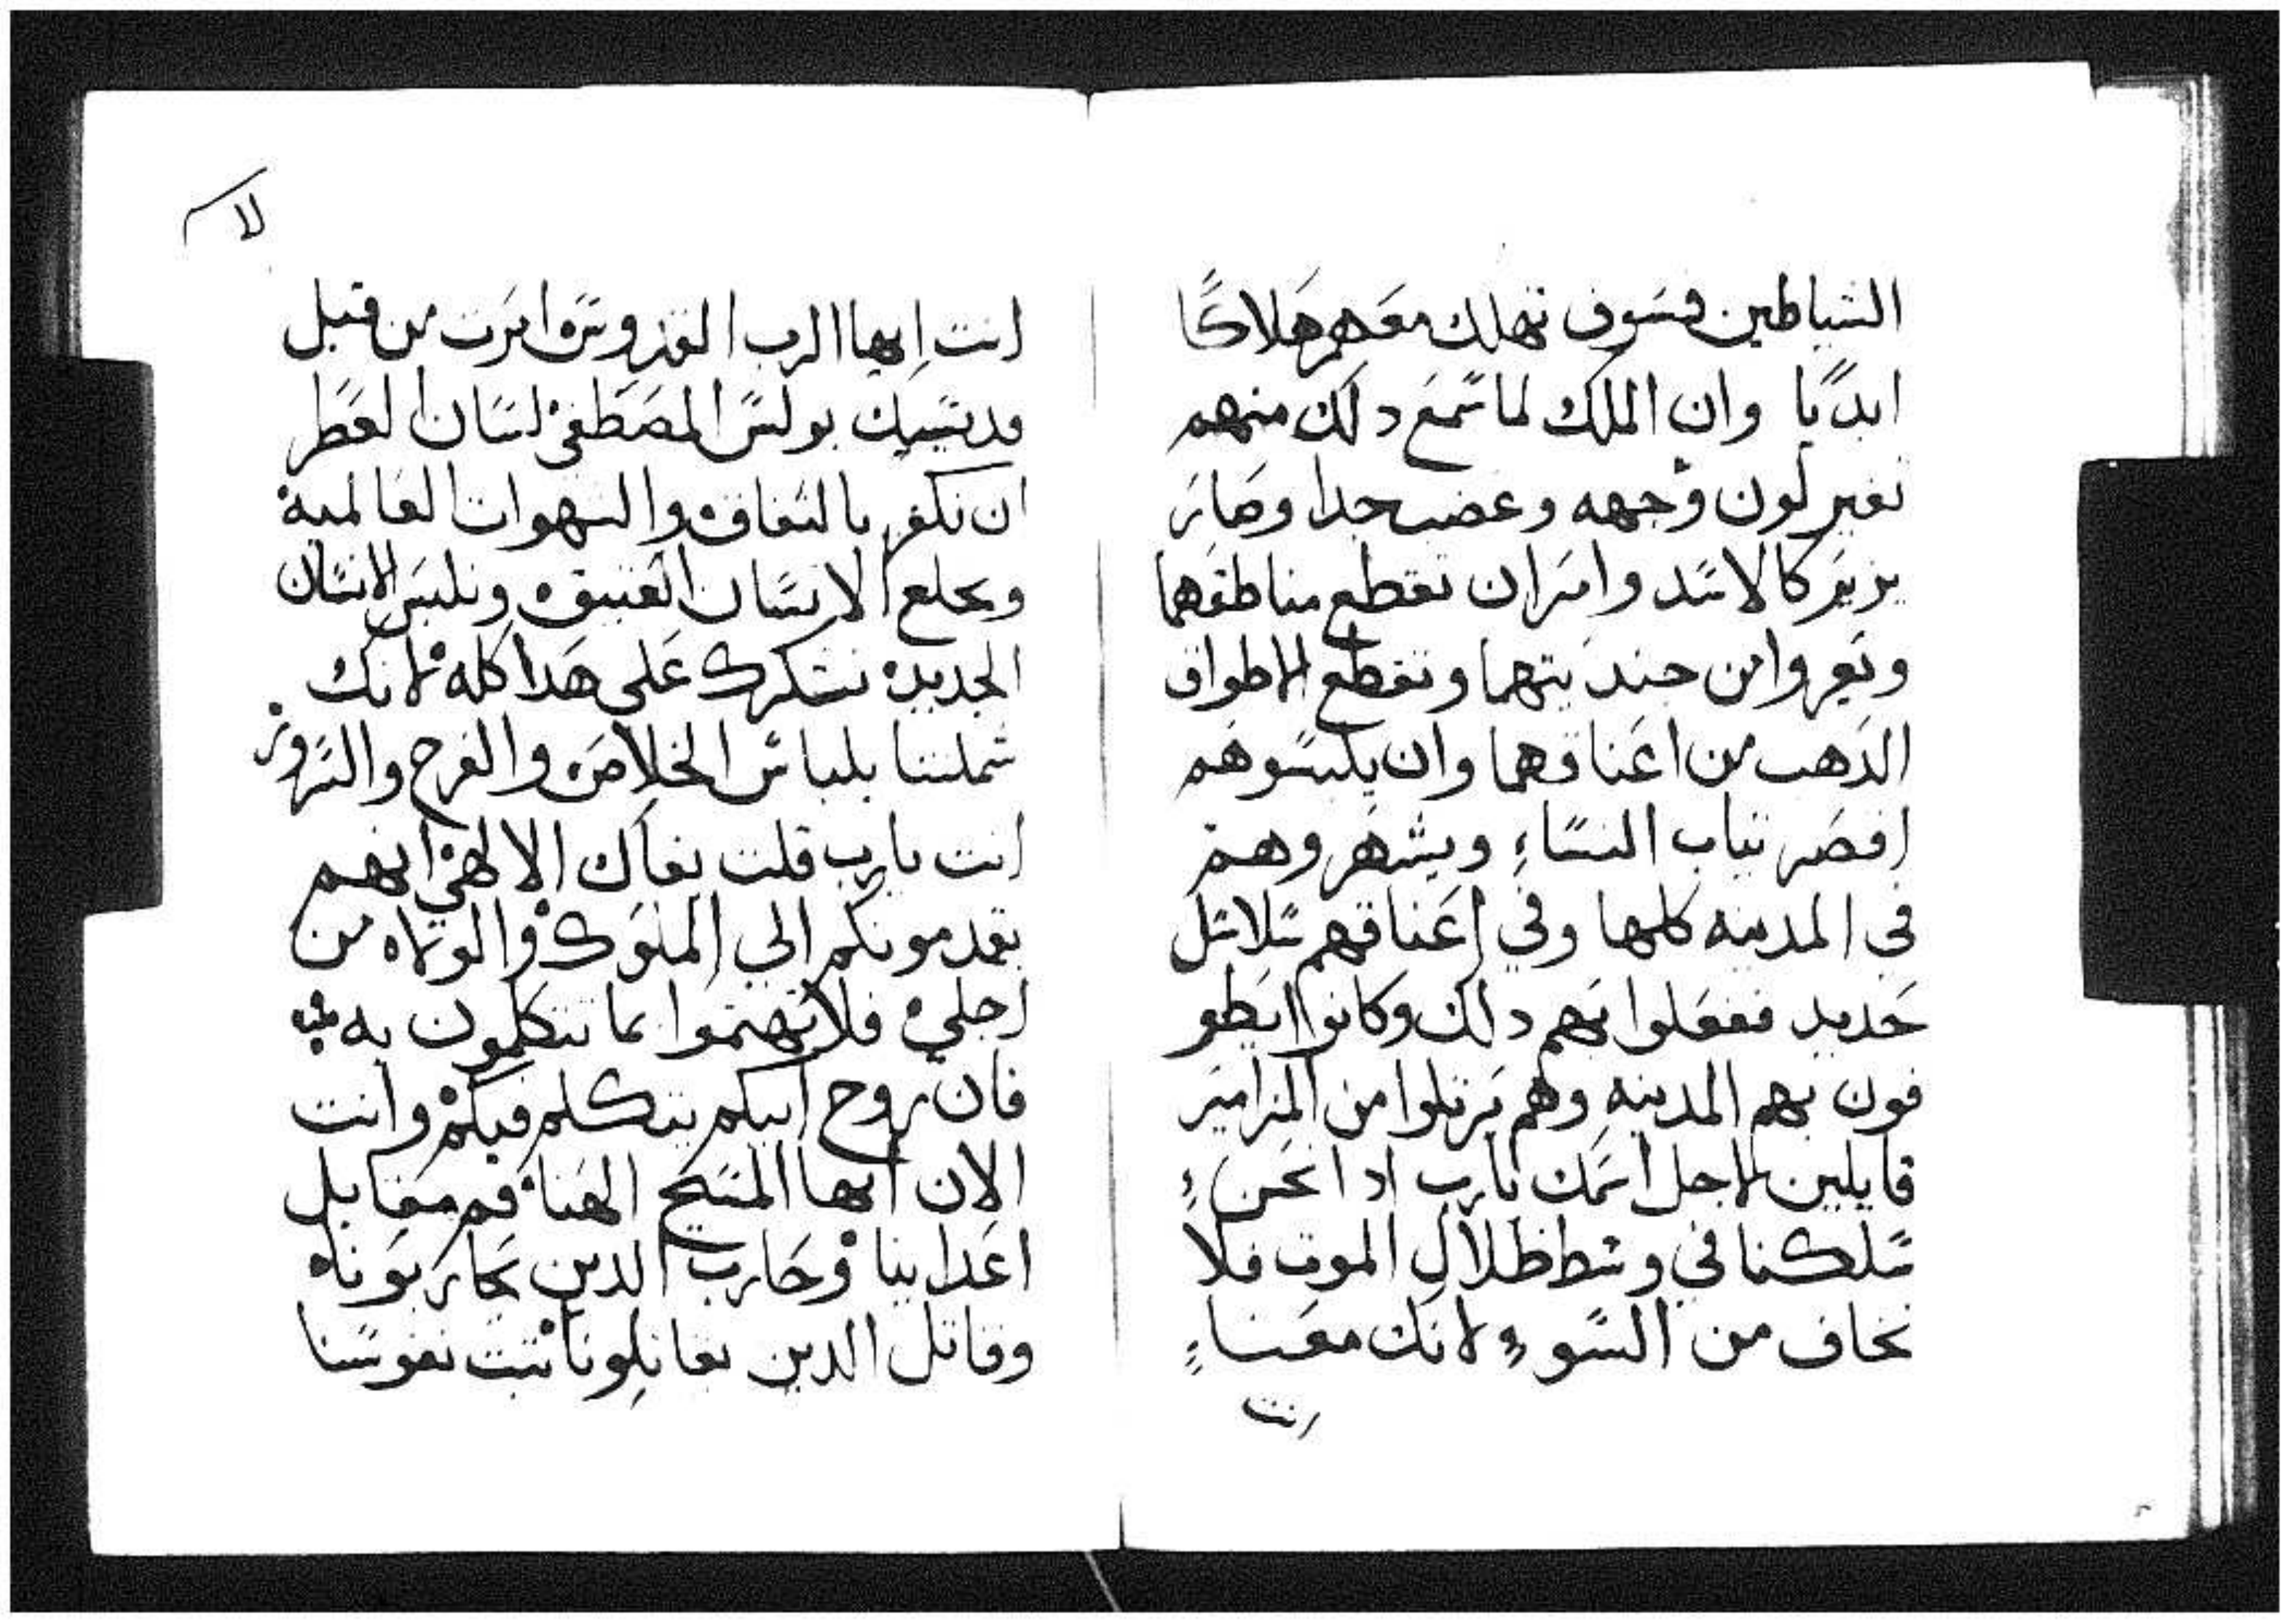 الشياطين فسوف تهلك معهم هلاكًا
ابديًا وان الملك لما سمع دلك منهم
تغير لون وجهه وغضب جدا وصار
يزير كالاسد وامر ان تقطع مناطقهما
وتعروا من جنديتهما وتقطع الاطواق
الدهب من اعناقهما وان يلبسوهم
اقصر تياب النساءِ ويشهروهم
في المدينه كلها وفي اعناقهم سلاسل
حديد ففعلوا بهم دلك وكانوا ايطو
فون بهم المدينه وهم يرتلوا من المزامير
قايلين لاجل اسمك يارب ادا نحن
سلكنا في وسط ظلال الموت فلا
نخاف من السوءِ لانك معنا
انت
لا
انت ايها الرب القدوس امرت من قبل
قديسك بولس المصطفي لسان العطر
ان نكفر بالنفاق والشهوات العالمية
ونخلع الانسان العتيق ونلبس الانسان
الجديد نشكرك على هدا كله لانك
شملتنا بلباس الخلاص والفرح والسرور
انت يارب قلت بفاك الالهي انهم
يقدمونكم الي الملوك والولاه من
اجلي فلا تهتموا بما تتكلمون به
فان روح ابيكم يتكلم فيكم وانت
الان ايها المسيح الهنا قم مقابل
اعداينا وحارب الدين يحاربونا
وقاتل الدين يقاتلونا تبت نفوسنا